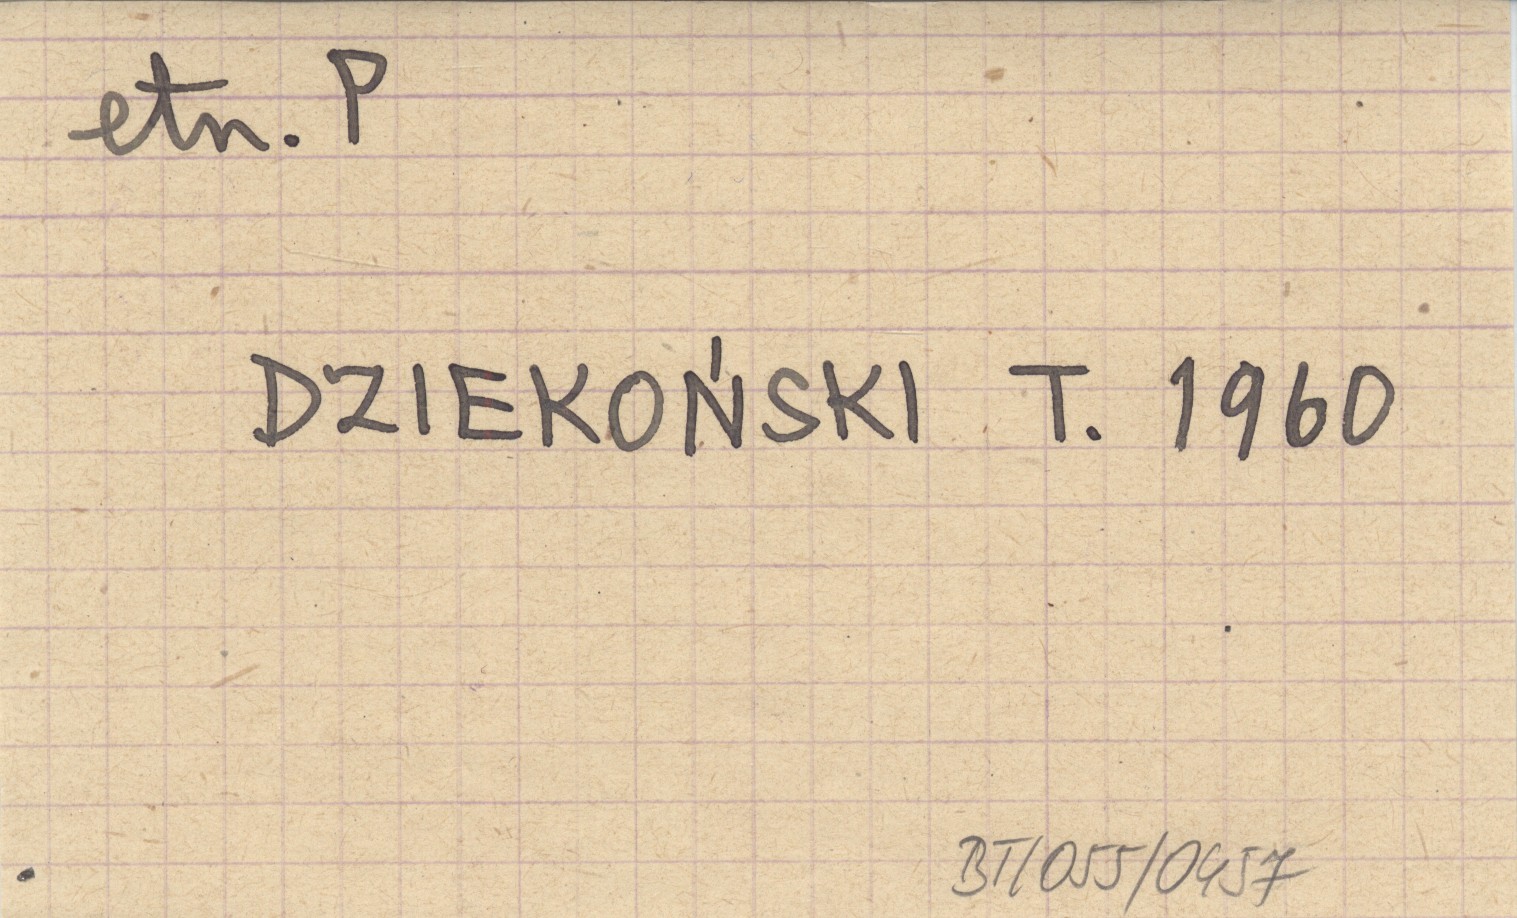 etn. P
DZIEKOŃSKI T. 1960
BT/055/0457